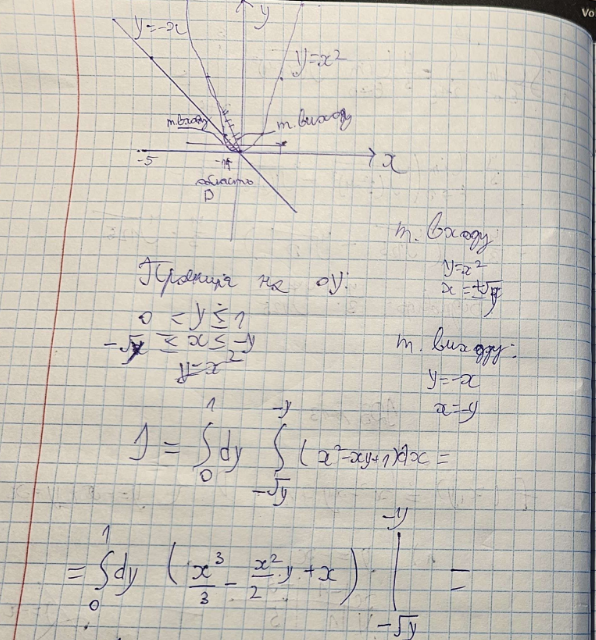 y=-x
y
y=x²
т. входу
т. виходу
-5
-1
x
область
D
т. входу
y=x²
x=±√y
Проекція на oy:
0 ≤ y ≤ 1
-√y ≤ x ≤ -y
y=x²
т. виходу:
y=-x
x=-y
J = ∫₀¹ dy ∫_{-√y}^{-y} (x²-xy+1)dx =
= ∫₀¹ dy (x³/3 - x²/2 y + x) |_{-√y}^{-y} =
Vo